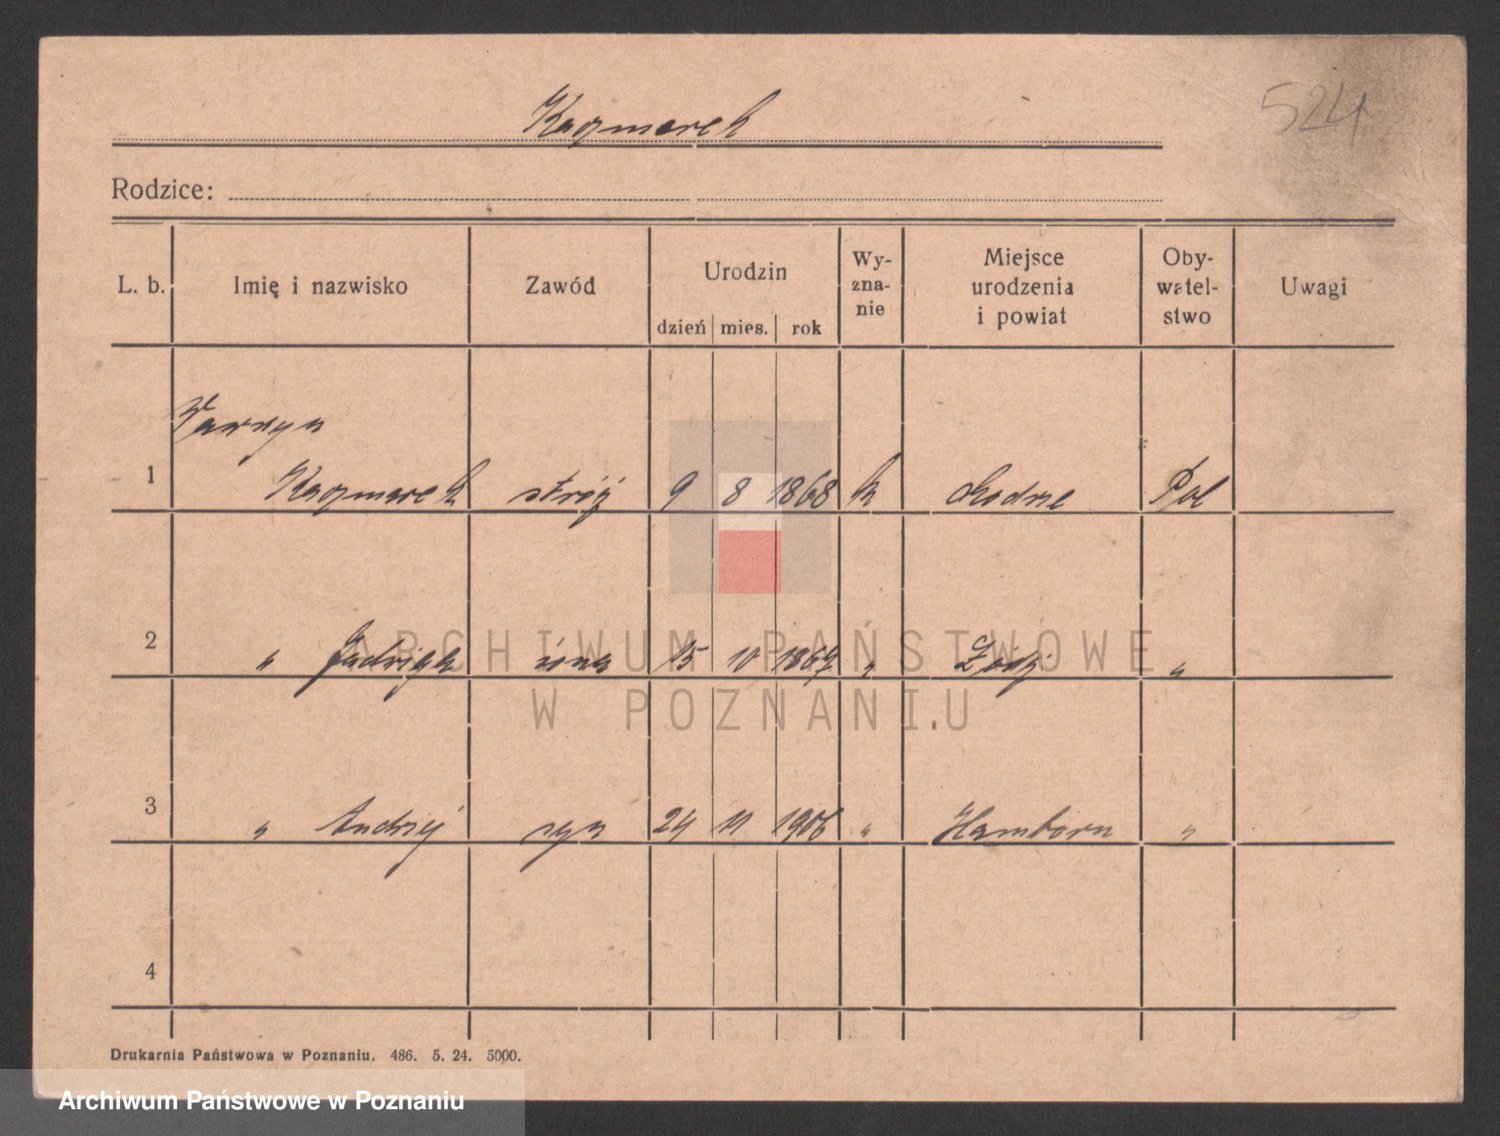 524
Kaczmarek
Rodzice:
L. b. Imię i nazwisko Zawód Urodzin dzień mies. rok Wy-zna-nie Miejsce urodzenia i powiat Oby-watel-stwo Uwagi
Wawrzyn
1 Kaczmarek stróż 9 8 1868 k Pol
2 " Jadwiga żona 15 10 1867 " "
3 " Andrzej syn 24 11 1906 " Hamborn "
4
ARCHIWUM PAŃSTWOWE
W POZNANIU
Drukarnia Państwowa w Poznaniu. 486. 5. 24. 5000.
Archiwum Państwowe w Poznaniu